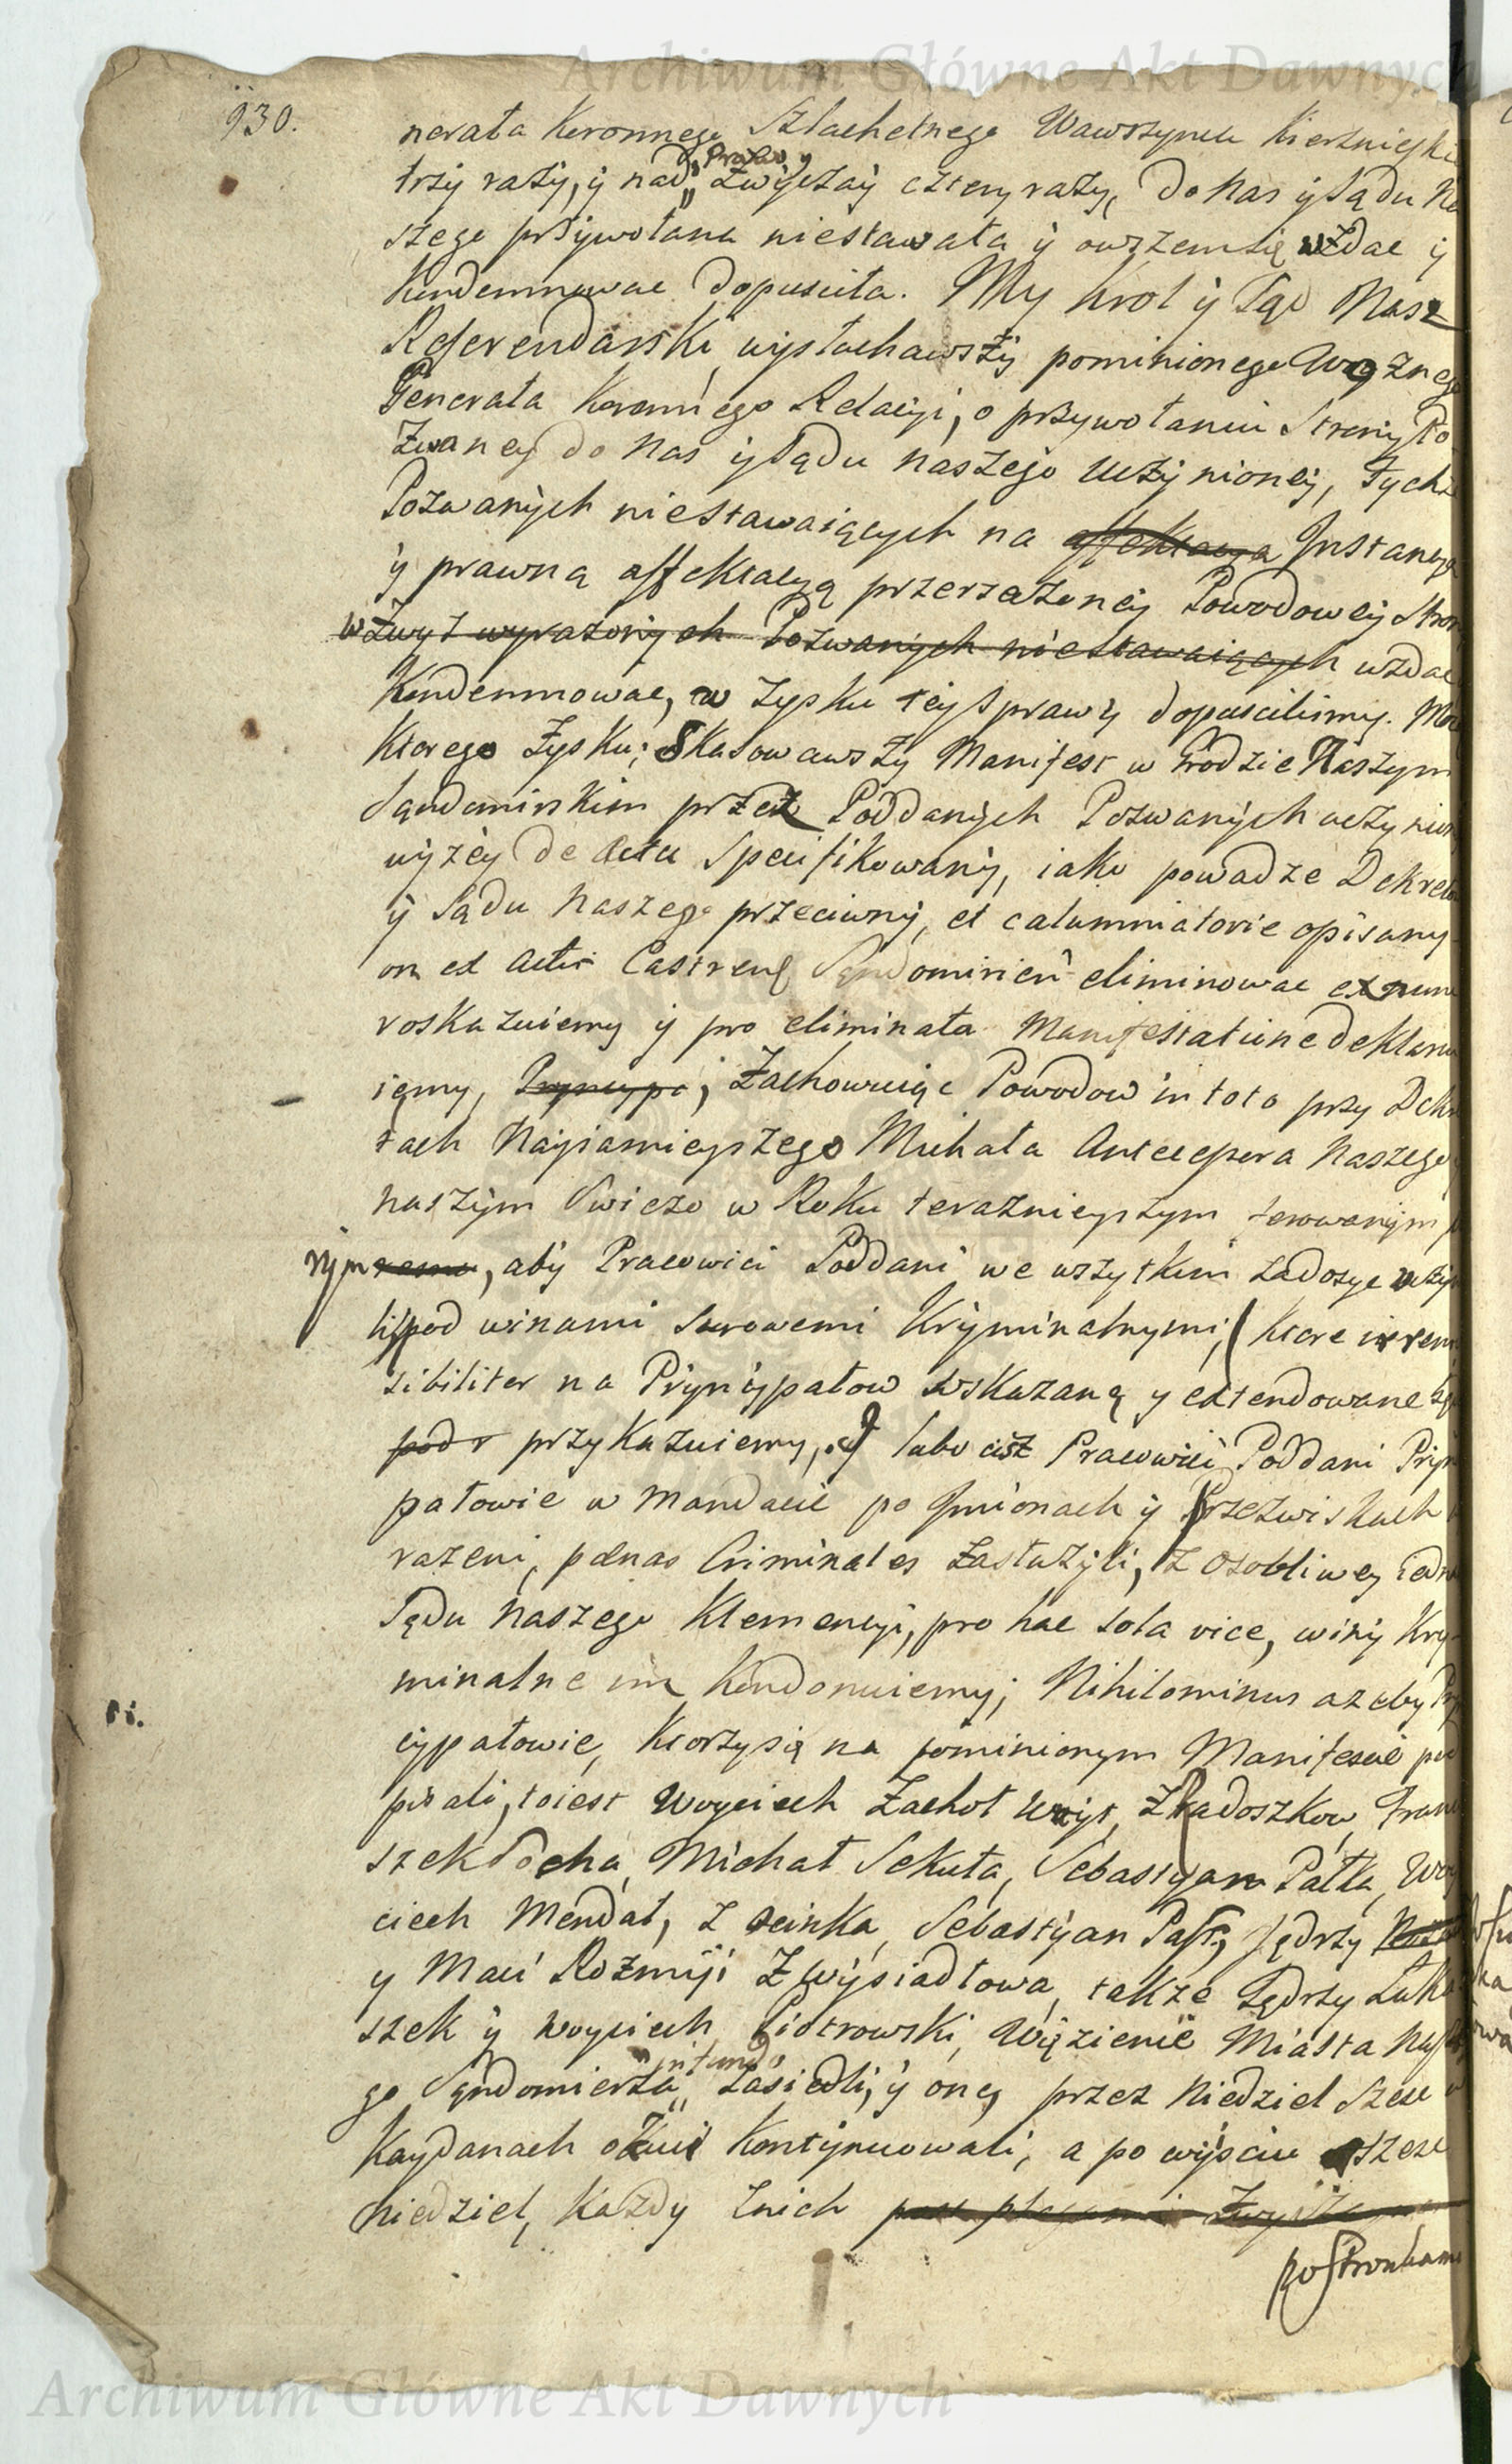 Archiwum Główne Akt Dawnych
930.
nerała Koronnego Szlachetnego Wawrzynca
Prawo y
trzy razy, y nad zwyczay cztery razy, do Nas y Sądu Na
szego przywołana niestawała y owszem się wzdac y
Kondemnowac dopusciła. My Krol y Sąd Nasz
Referendarski, wysłuchawszy pominionego Woznego
Generała Koronnego Relacyi, o przywołaniu Strony Po
zwaney do Nas y Sądu naszego uczynioney, tychze
Pozwanych niestawaiących na affektacyą Instancyą
y prawną affektacyą przerzeczoney Powodowey Strony
wzwyz wyrazonych Pozwanych niestawaiących wzdac
Kondemnowac, w zysku tey Sprawy dopuscilismy. Mocą
Ktorego zysku; Skasowawszy Manifest w Grodzie Naszym
Sandomirskim przez Poddanych Pozwanych uczyniony
wyzey de Actu Specifikowany, iako powadze Dekretow
y Sądu Naszego przeciwny, et calumniatorie opisany
on ex Actis Castren Sandomirien eliminowac ex nunc
roskazuiemy y pro eliminata Manifestatione deklaru
iemy, Zachowuiąc Powodow in toto przy Dekre
tach Nayiasnieyszego Michała Antecessora Naszego y
naszym Swiezo w Roku teraznieyszym ferowanym
rym, aby Pracowici Poddani we wszytkim zadosyc uczy
li, pod winami Surowemi Kryminalnymi, Ktore irremi
sibiliter na Pryncypałow wskazaną y extendowane
pod r przykazuiemy, y lubo ciż Pracowici Poddani Pryn
pałowie w Mandacie po Imionach y Przezwiskach
razeni, pœnas Criminales zasłużyli, z osobliwey iedn
Sądu Naszego Klemencyi, pro hac sola vice, winy Kry-
minalne im Kondonuiemy; Nihilominus azeby Pryn
si.
cypałowie, Ktorzy się na pominionym Manifescie pod
pisali, to iest Woyciech Zachot Woyt, Z Radoszkow, Fran
szek Socha, Michał Sekuła, Sebastyan Pałka, Woy
ciech Mendal, z Sebastyan Jędrzy
y Maci Rozmyi z Wysiadłowa, takze Jędrzy Łuka
szek y Woyciech Piotrowski, Więzienie Miasta Nasze
in fundo
go Sandomierza zasiedli, y one, przez Niedziel Szesc w
Kaydanach okuci Kontynuowali, a po wyisciu szesc
niedziel, Każdy znich
postronkami
Archiwum Główne Akt Dawnych